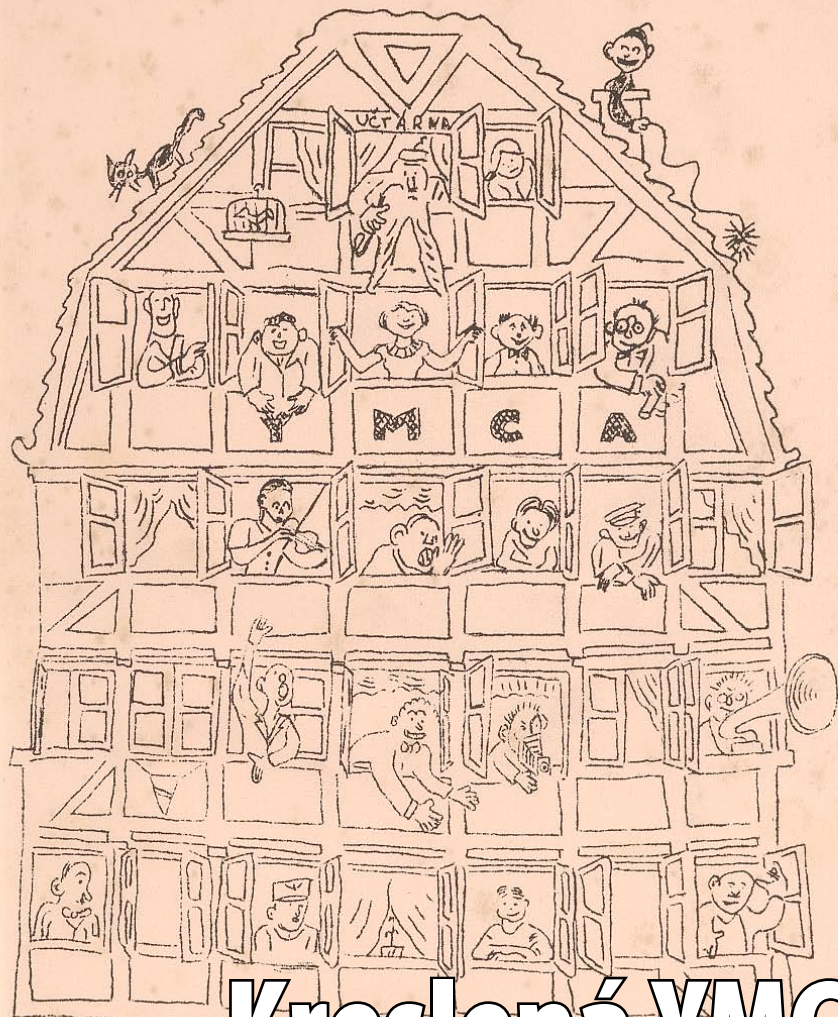 UČTARNA
Y M C A
Kreslená YMC